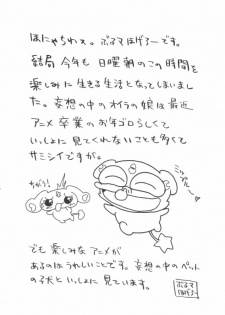 はにゃちわっ。ぶるマほげろーです。
結局 今年も 日曜朝のこの時間を
楽しみに 生きる生活となってしまいまし
た。妄想の中のオイラの娘は最近
アニメ卒業のお年ゴロらしくて
いっしょに見てくれないことも多くて
サミシイですが。
ちがう!
でも楽しみなアニメが
あるのはうれしいことです。妄想の中のペット
の子犬といっしょに見ています。
ぶるマ
ほげろー